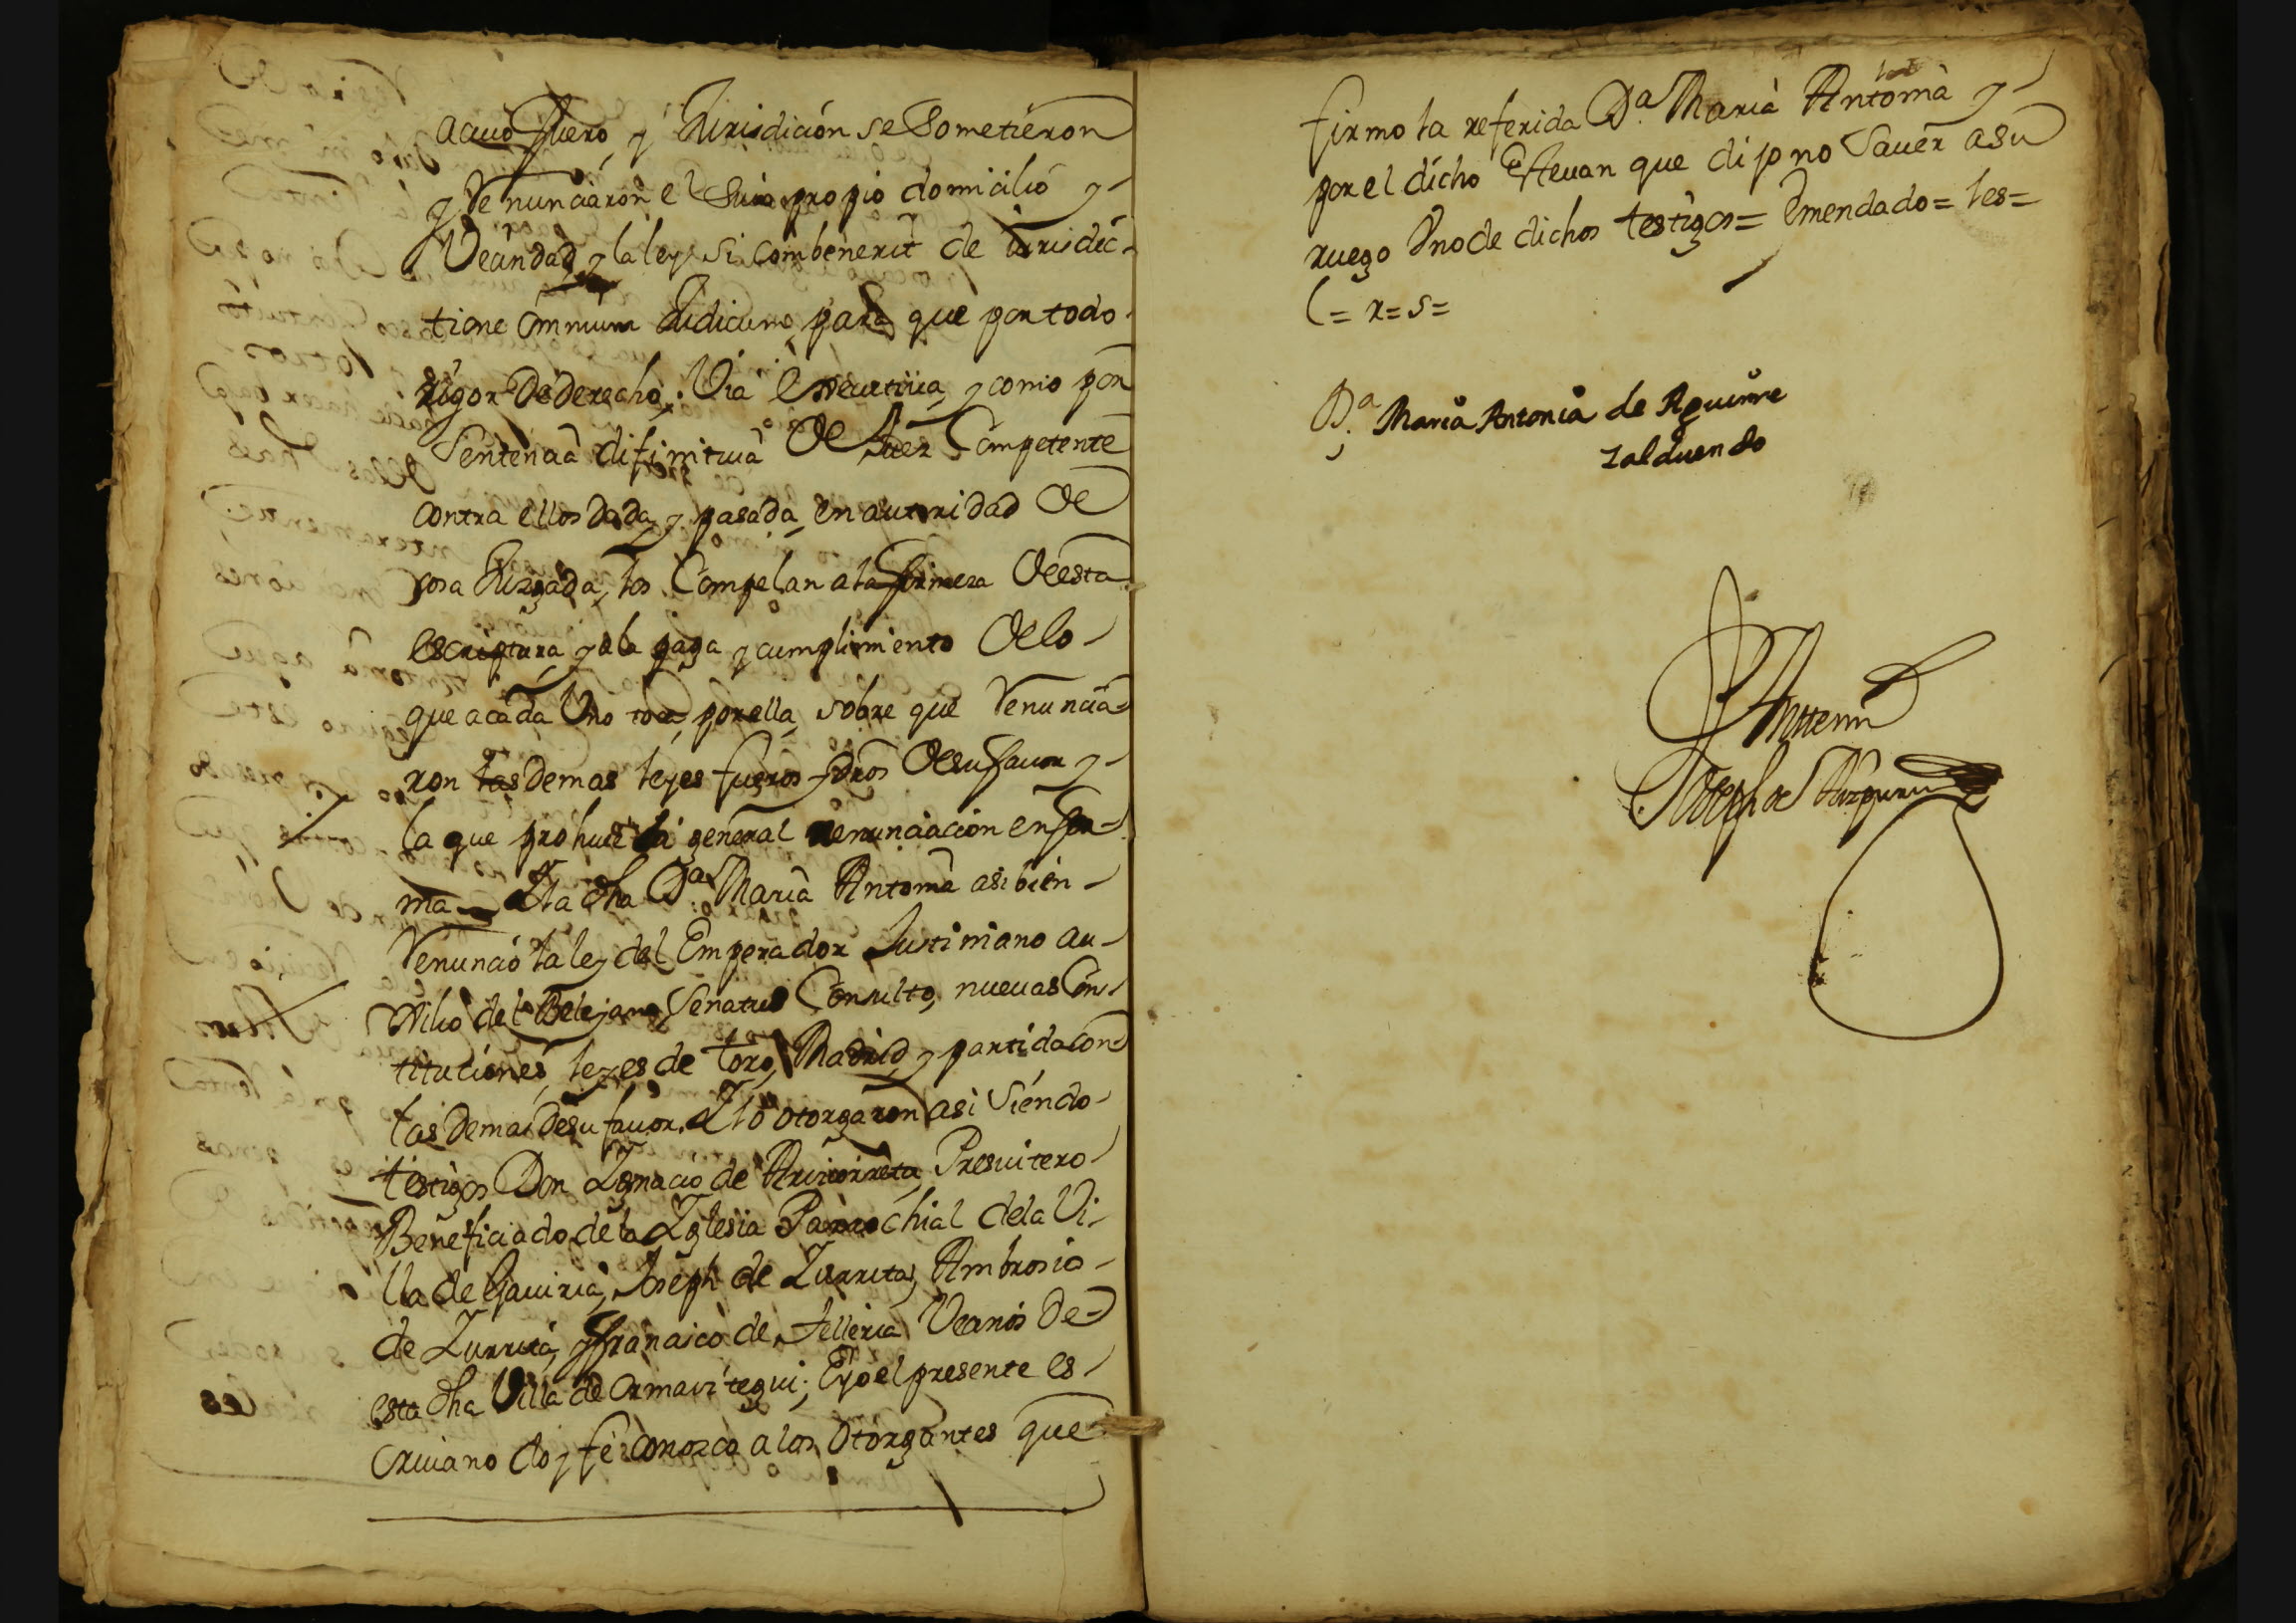 acuio fuero, y Jurisdicion se Sometieron
y Renunciaron el Suio propio domicilio y
Vecindad y la ley, si combenerit de iurisdic-
tione omnium Judicum, para que por todo
rigor de derecho, Via executiva, y como por
Sentencia difinitiva de Juez Competente
contra ellos dada, y pasada, en autoridad de
cosa Juzgada, los Compelan a la firmeza de esta
escriptura, y a la paga y cumplimiento de lo
que a cada Uno toca, por ella, sobre que Renuncia-
ron las demas leyes fueros y dros de su favor y
la que prohive la general renunciacion en for-
ma = Y la dha Da. Maria Antonia asi bien
Renunció la ley del Emperador Justiniano au-
xilio del Belejano, Senatus Consulto, nuevas Cons-
tituciones, leyes de Toro, Madrid, y partida con
las demas de su favor. Y lo otorgaron asi Siendo
testigos Don Ygnacio de Presvitero
Beneficiado de la Yglesia Parrochial de la Vi-
lla de Gaviria, Joseph de Zurruta, Ambrosio
de Zurruta, y Francisco de Telleria Vecinos de
esta dha Villa de Ormaiztegui; E yo el presente es-
crivano doy fe conozco a los Otorgantes que
firmo la referida Da. Maria Antonia y
por el dicho Estevan que dijo no Saver a su
ruego Uno de dichos testigos = Emendado = les =
l = r = s =
Da. Maria Antonia de Aguirre
Zalduendo
Ante mi
Joseph de Aizpuru